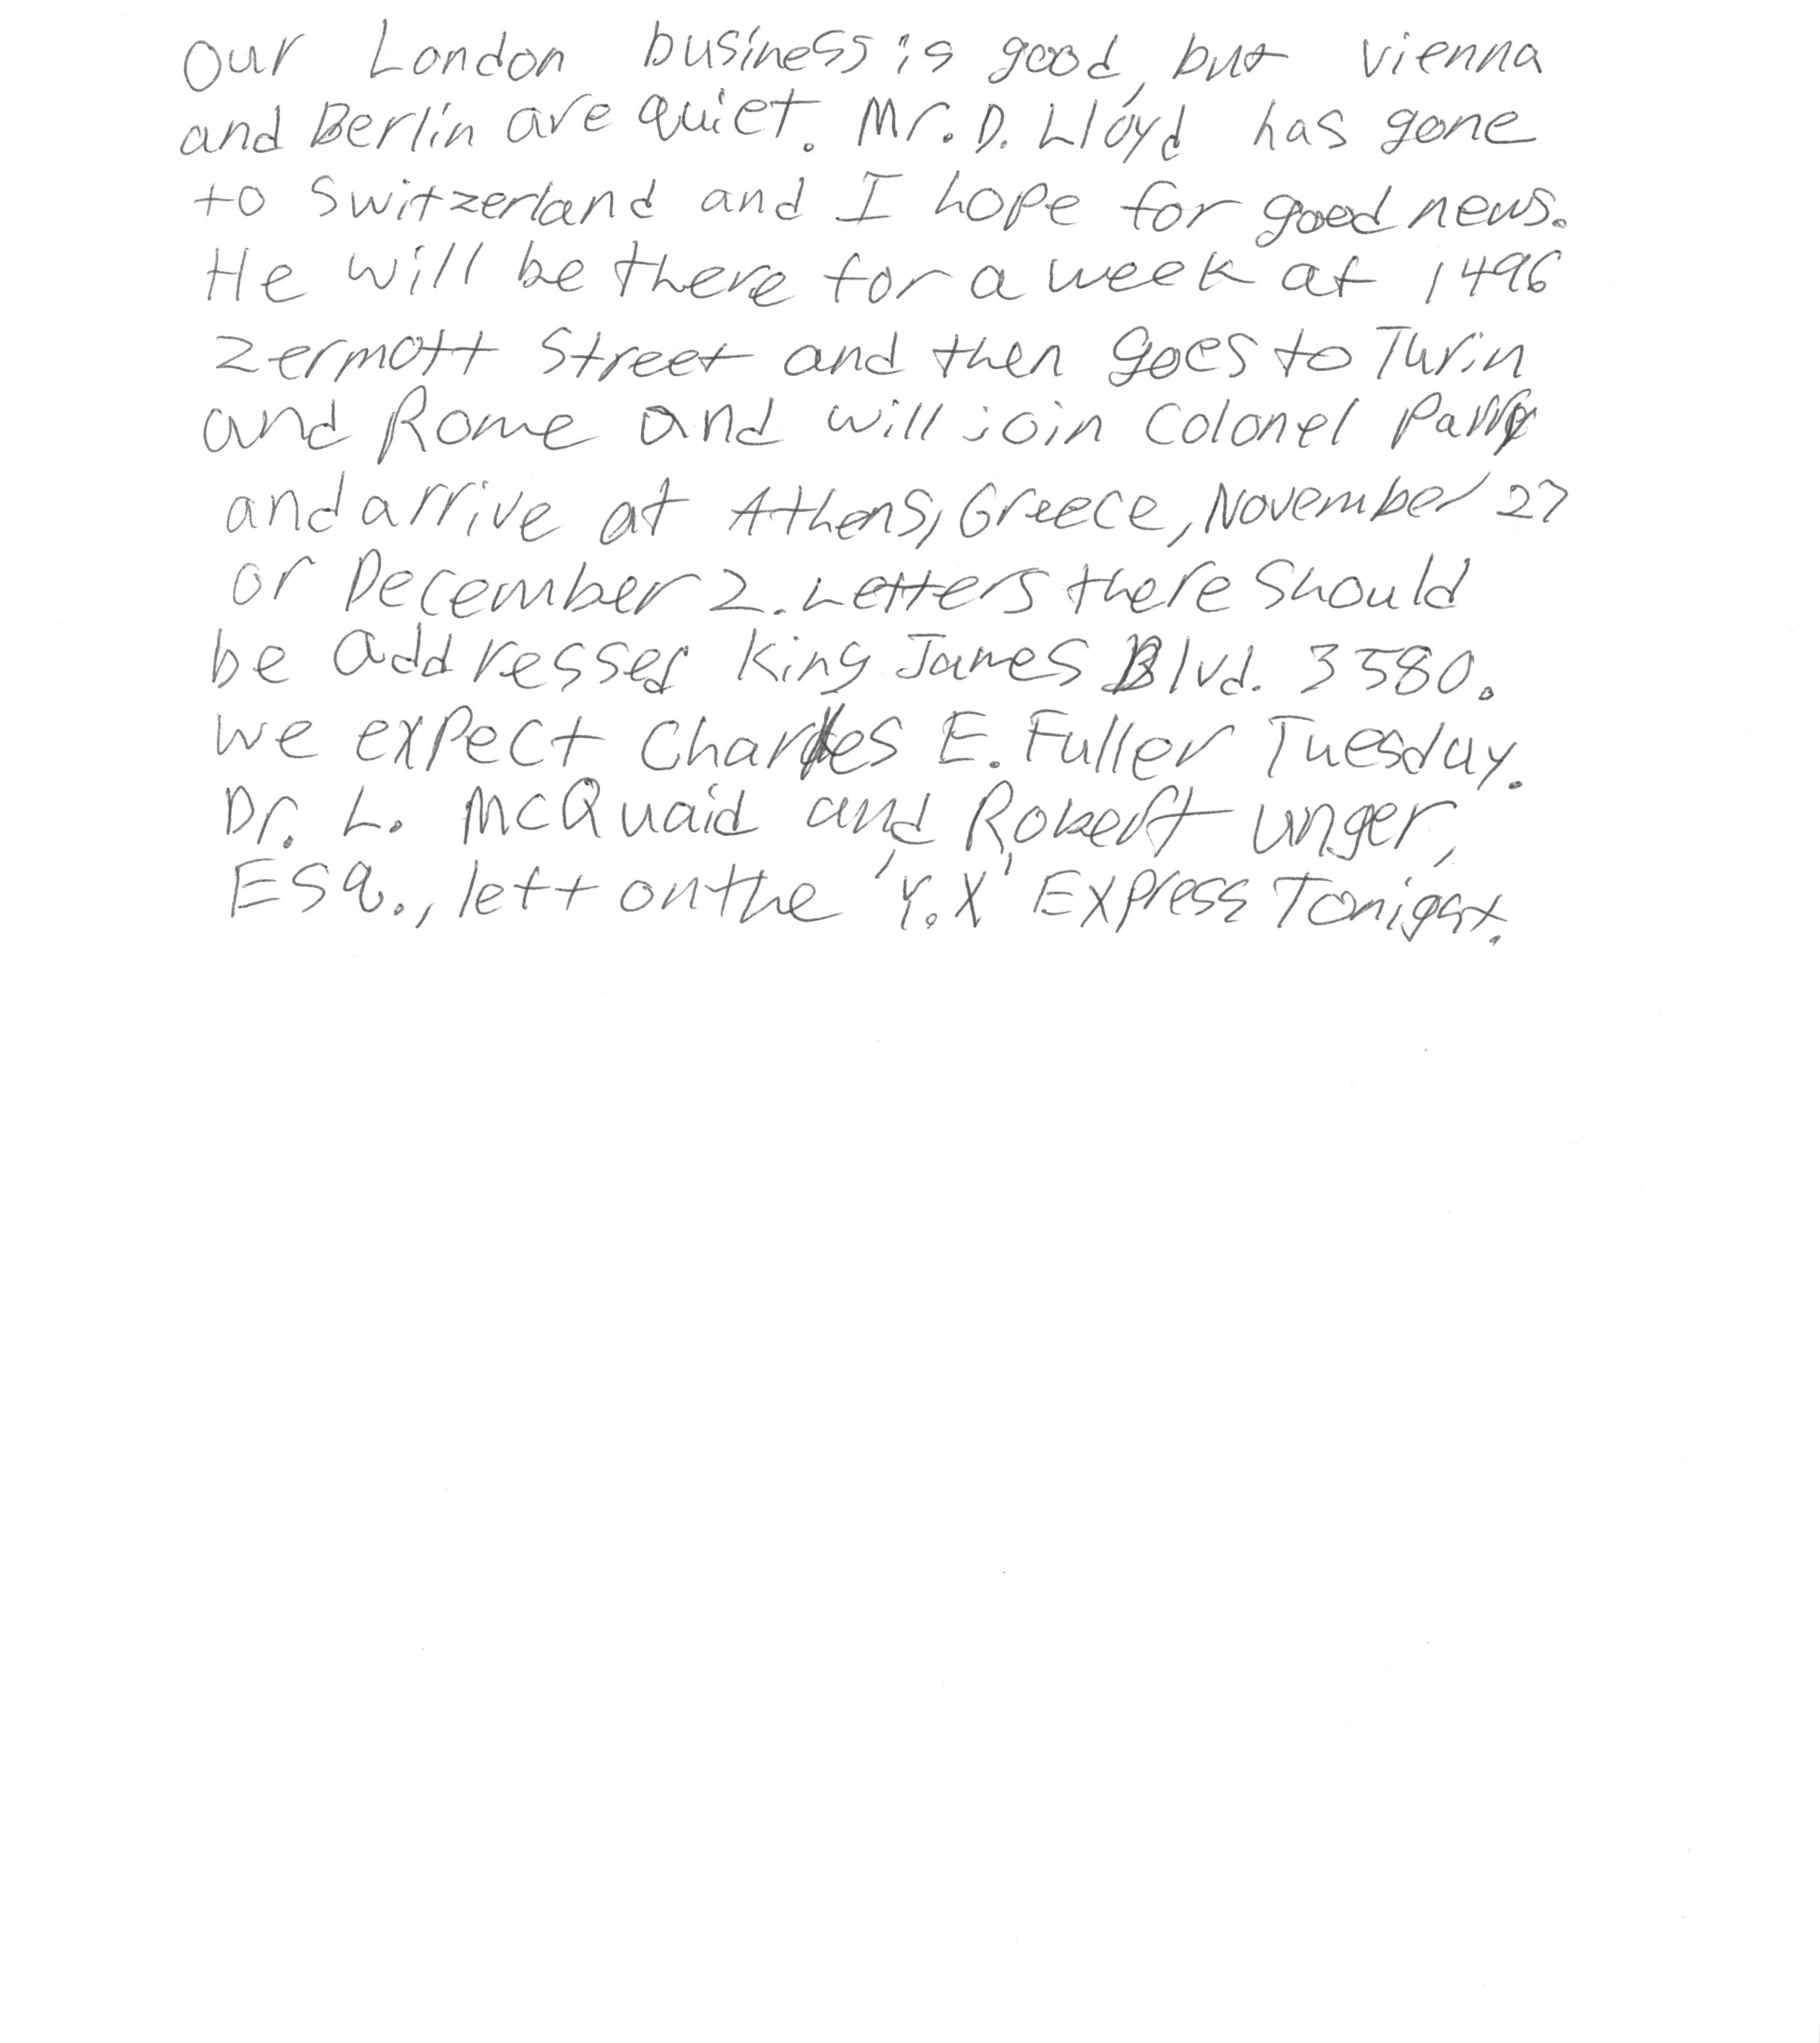 Our London business is good, but Vienna
and Berlin are quiet. Mr. D. Lloyd has gone
to Switzerland and I hope for good news.
He will be there for a week at 1496
Zermott Street and then goes to Turin
and Rome and will join Colonel Parry
and arrive at Athens, Greece, November 27
or December 2. Letters there should
be addressed King James Blvd. 3580.
We expect Charles E. Fuller Tuesday.
Dr. L. McQuaid and Robert Unger,
Esq., left on the 'Y.X' Express Tonight.